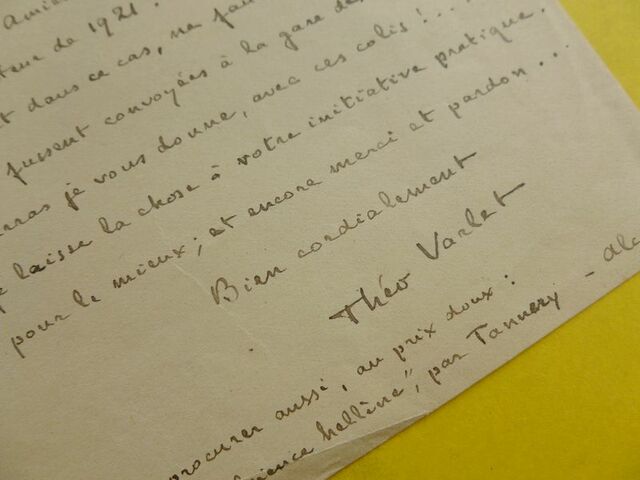 teur de 1921.
t dans ce cas, ne fau
fussent convoyées à la gare de
rras je vous donne, avec ces colis!...
laisse la chose à votre initiative pratique.
pour le mieux; et encore merci et pardon...
Bien cordialement
Théo Varlet
procurer aussi, au prix doux:
ience hellène", par Tannery - Alc